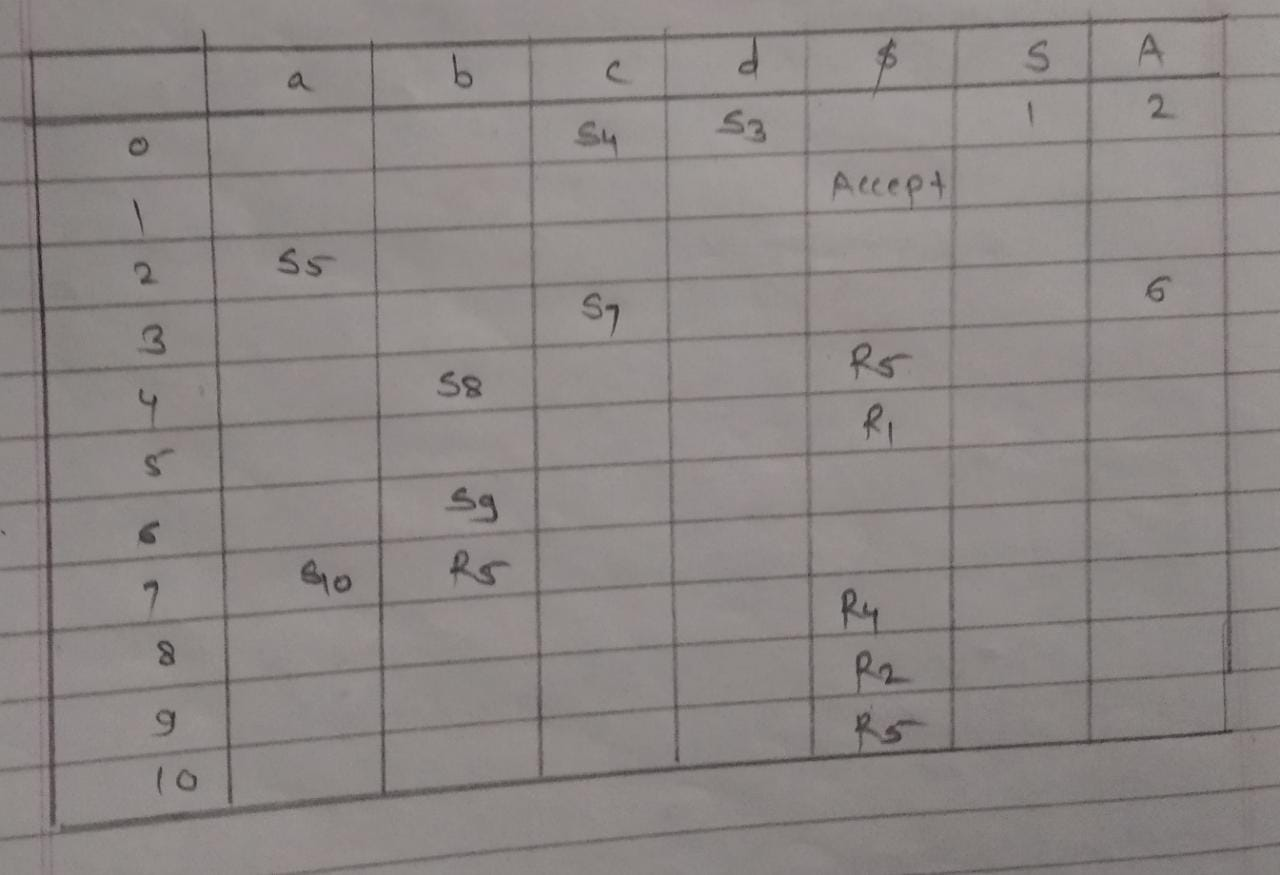 a b c d $ S A
0 S4 S3 1 2
1 Accept
2 S5
3 S7 6
4 S8 R5
5 R1
6 S9
7 S10 R5
8 R4
9 R2
10 R5